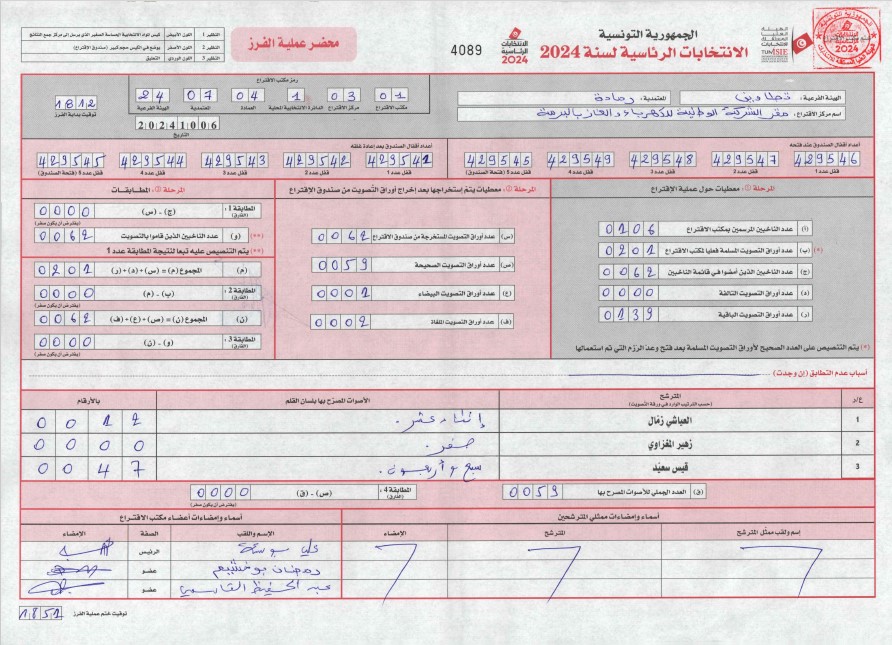 الجمهورية التونسية
الانتخابات الرئاسية لسنة 2024
الانتخابات الرئاسية 2024
4089
محضر عملية الفرز
النظير 1 اللون الأبيض
النظير 2 اللون الأحمر يوضع في الكيس مجم كبير (صندوق الاقتراع)
النظير 3 اللون الوردي التعليق
الهيئة الفرعية : تطاوين المعتمدية : رمادة
اسم مركز الاقتراع : مقر الشركة الوطنية للكهرباء والغاز بالبرمة
رمز مكتب الاقتراع
01 03 1 04 07 24
مكتب الاقتراع مركز الاقتراع الدائرة الانتخابية المحلية العمادة المعتمدية الهيئة الفرعية
1812
توقيت بداية الفرز
20241006
التاريخ
أعداد أقفال الصندوق عند فتحه
429546 429547 429548 429549 429545
قفل عدد 1 قفل عدد 2 قفل عدد 3 قفل عدد 4 قفل عدد 5 (فتحة الصندوق)
أعداد أقفال الصندوق بعد إعادة غلقه
429541 429542 429543 429544 429545
قفل عدد 1 قفل عدد 2 قفل عدد 3 قفل عدد 4 قفل عدد 5 (فتحة الصندوق)
المرحلة ①: معطيات حول عملية الاقتراع
(أ) عدد الناخبين المرسمين بمكتب الاقتراع 0106
(*) (ب) عدد أوراق التصويت المسلمة فعليا لمكتب الاقتراع 0201
(ج) عدد الناخبين الذين أمضوا في قائمة الناخبين 0062
(د) عدد أوراق التصويت التالفة 0000
(ر) عدد أوراق التصويت الباقية 0139
(*) يتم التنصيص على العدد الصحيح لأوراق التصويت المسلمة بعد فتح وعد الرزم التي تم استعمالها
المرحلة ②: معطيات يتم إستخراجها بعد إخراج أوراق التصويت من صندوق الاقتراع
(س) عدد أوراق التصويت المستخرجة من صندوق الاقتراع 0062
(ص) عدد أوراق التصويت الصحيحة 0059
(ع) عدد أوراق التصويت البيضاء 0001
(ف) عدد أوراق التصويت الملغاة 0002
المرحلة ③: المطابقات
المطابقة 1 : (الفارق) (ج) - (س) 0000
(يفترض أن يكون صفر)
(**) (و) عدد الناخبين الذين قاموا بالتصويت 0062
(**) يتم التنصيص عليه تبعا لنتيجة المطابقة عدد 1
(م) المجموع (م) = (س) + (د) + (ر) 0201
المطابقة 2 : (الفارق) (ب) - (م) 0000
(يفترض أن يكون صفر)
(ن) المجموع (ن) = (ص) + (ع) + (ف) 0062
المطابقة 3 : (الفارق) (و) - (ن) 0000
(يفترض أن يكون صفر)
أسباب عدم التطابق (إن وجدت)
ع/د المترشح الأصوات المصرّح بها بلسان القلم بالأرقام
(حسب الترتيب الوارد في ورقة التصويت)
1 العياشي زمّال إثنا عشر. 0012
2 زهير المغزاوي صفر. 0000
3 قيس سعيّد سبع و أربعون. 0047
(ق) العدد الجملي للأصوات المصرح بها 0059
المطابقة 4 : (الفارق) (ص) - (ق) 0000
(يفترض أن يكون صفر)
أسماء وإمضاءات ممثلي المترشحين
إسم ولقب ممثل المترشح المترشح الإمضاء
أسماء وإمضاءات أعضاء مكتب الاقتراع
الإسم واللقب الصفة الإمضاء
الرئيس
عضو
عبد الحفيظ القاسمي عضو
توقيت ختم عملية الفرز 1851